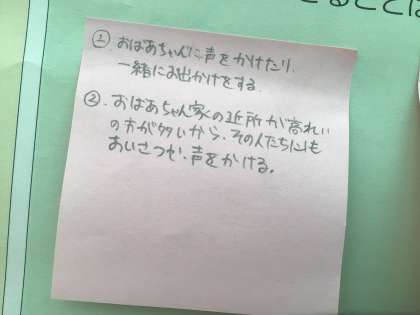 きることは
① おばあちゃんに声をかけたり、
一緒にお出かけをする.
② おばあちゃん家の近所が高れい
の方が多いから、その人たちにも
あいさつや、声をかける。